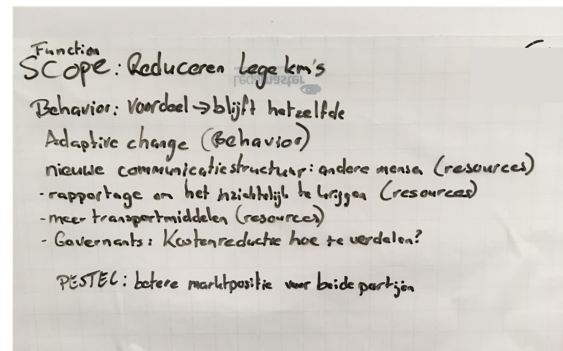 Function
SCOPE: Reduceren lege km's
Legamaster
Behavior: Voordeel → blijft hetzelfde
Adaptive change (Behavior)
nieuwe communicatiestructuur: andere mensen (resources)
- rapportage om het inzichtelijk te krijgen (resources)
- meer transportmiddelen (resources)
- Governants: Kostenreductie hoe te verdelen?
PESTEL: betere marktpositie voor beide partijen